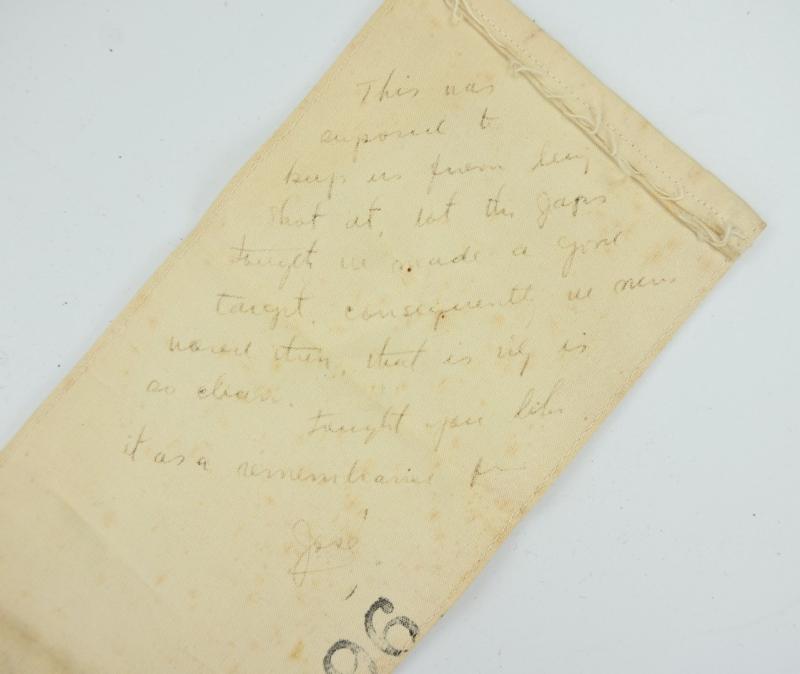 This was
suposed to
keep us from being
shot at, but the Japs
tought we made a good
target, consequently we never
wored them, that is why is
so clean.
tought you like
it as a remembrance from
José
96